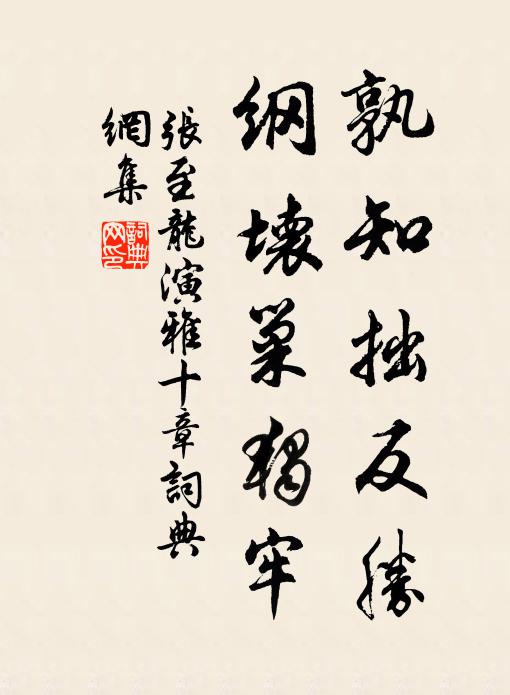 孰知拙反勝
網壞巢獨牢
張至龍演雅十章詞典
網集
詞典
网印